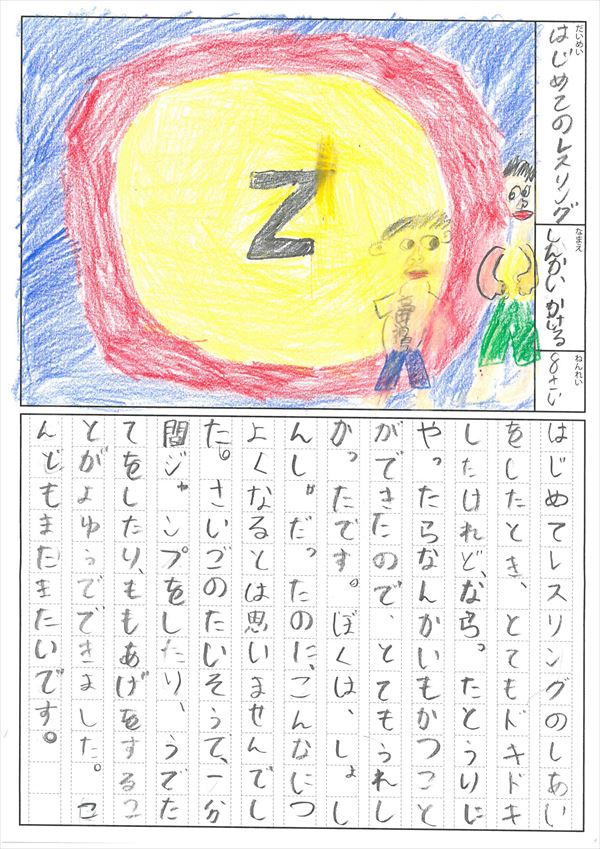 だいめい
はじめてのレスリング
なまえ
しんかい かける
ねんれい
8さい
Z
はじめてレスリングのしあい
をしたとき、とてもドキドキ
したけれど、ならったとうりに
やったらなんかいもかつこと
ができたので、とてもうれし
かったです。ぼくは、しょし
んしゃだったのに、こんなにつ
よくなるとは思いませんでし
た。さいごのたいそうで、一分
間ジャンプをしたり、うでた
てをしたり、ももあげをするこ
とがよゆうでできました。こ
んどもまたまたいです。